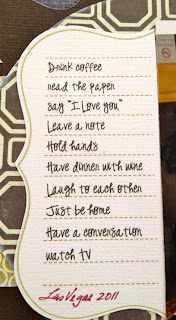 Drink coffee
read the paper
say "I Love you"
Leave a note
Hold hands
Have dinner with wine
Laugh to each other
Just be home
Have a conversation
watch tv
Las Vegas 2011